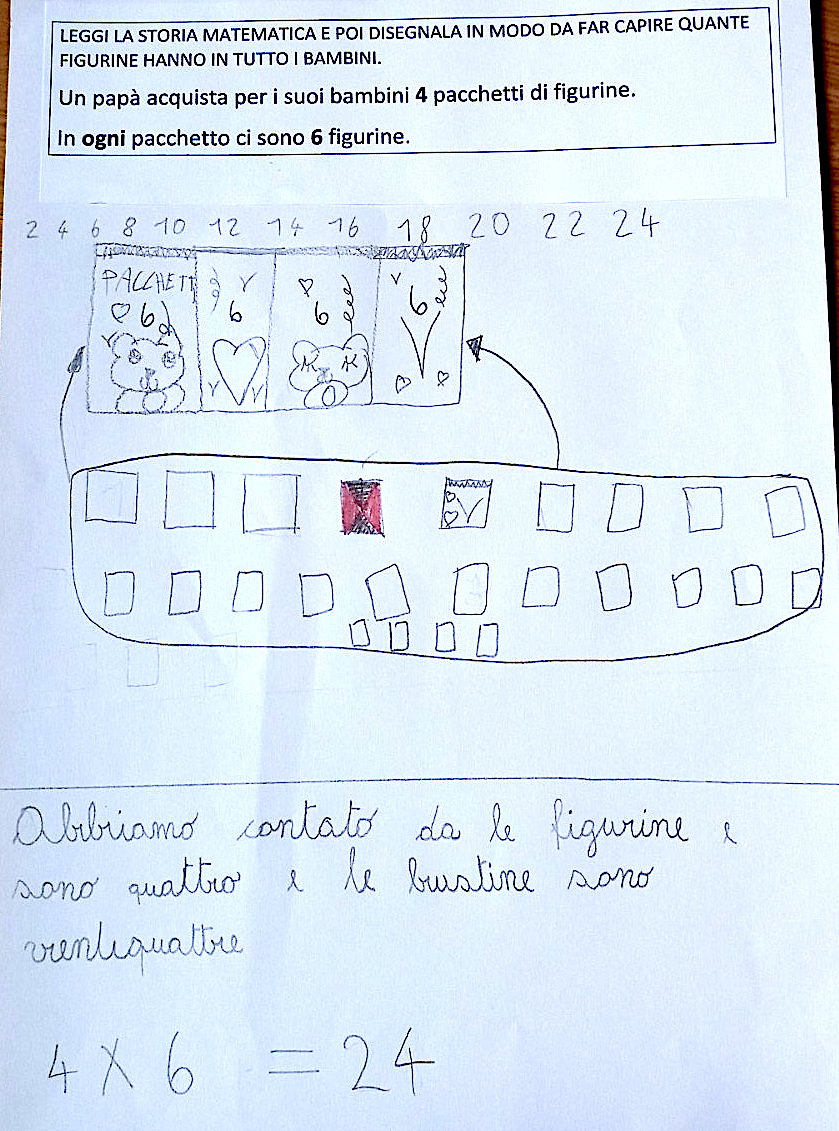 LEGGI LA STORIA MATEMATICA E POI DISEGNALA IN MODO DA FAR CAPIRE QUANTE
FIGURINE HANNO IN TUTTO I BAMBINI.
Un papà acquista per i suoi bambini 4 pacchetti di figurine.
In ogni pacchetto ci sono 6 figurine.
2 4 6 8 10 12 14 16 18 20 22 24
PACCHETI
6 6 6 6
Abbiamo contato da le figurine e
sono quattro e le bustine sono
ventiquattre
4 X 6 = 24